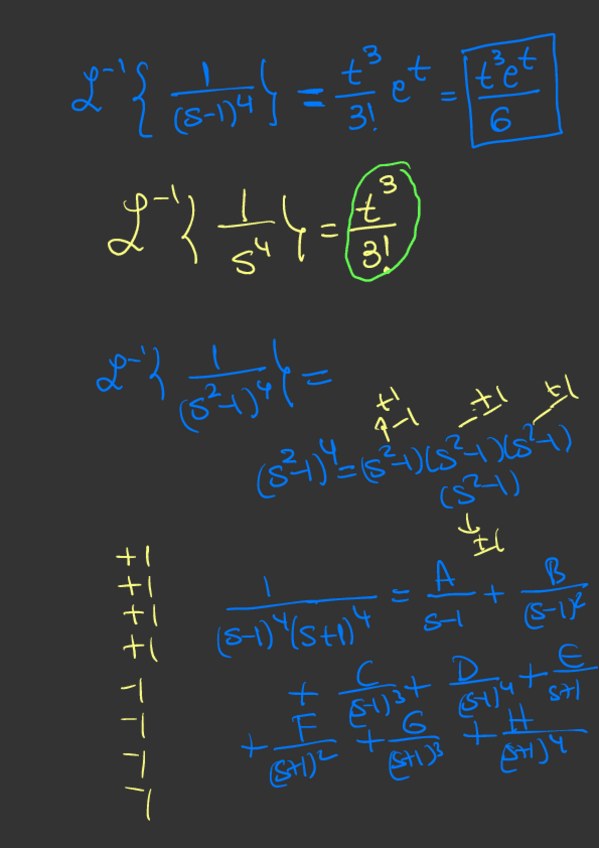 ℒ⁻¹{ 1/(s-1)⁴ } = t³/3! eᵗ = t³eᵗ/6
ℒ⁻¹{ 1/s⁴ } = t³/3!
ℒ⁻¹{ 1/(s²-1)⁴ } =
+1 -1 ±1 ±1
(s²-1)⁴ = (s²-1)(s²-1)(s²-1)
(s²-1)
↓
±1
+1
+1
+1
+1
-1
-1
-1
-1
1/((s-1)⁴(s+1)⁴) = A/(s-1) + B/(s-1)²
+ C/(s-1)³ + D/(s-1)⁴ + E/(s+1)
+ F/(s+1)² + G/(s+1)³ + H/(s+1)⁴